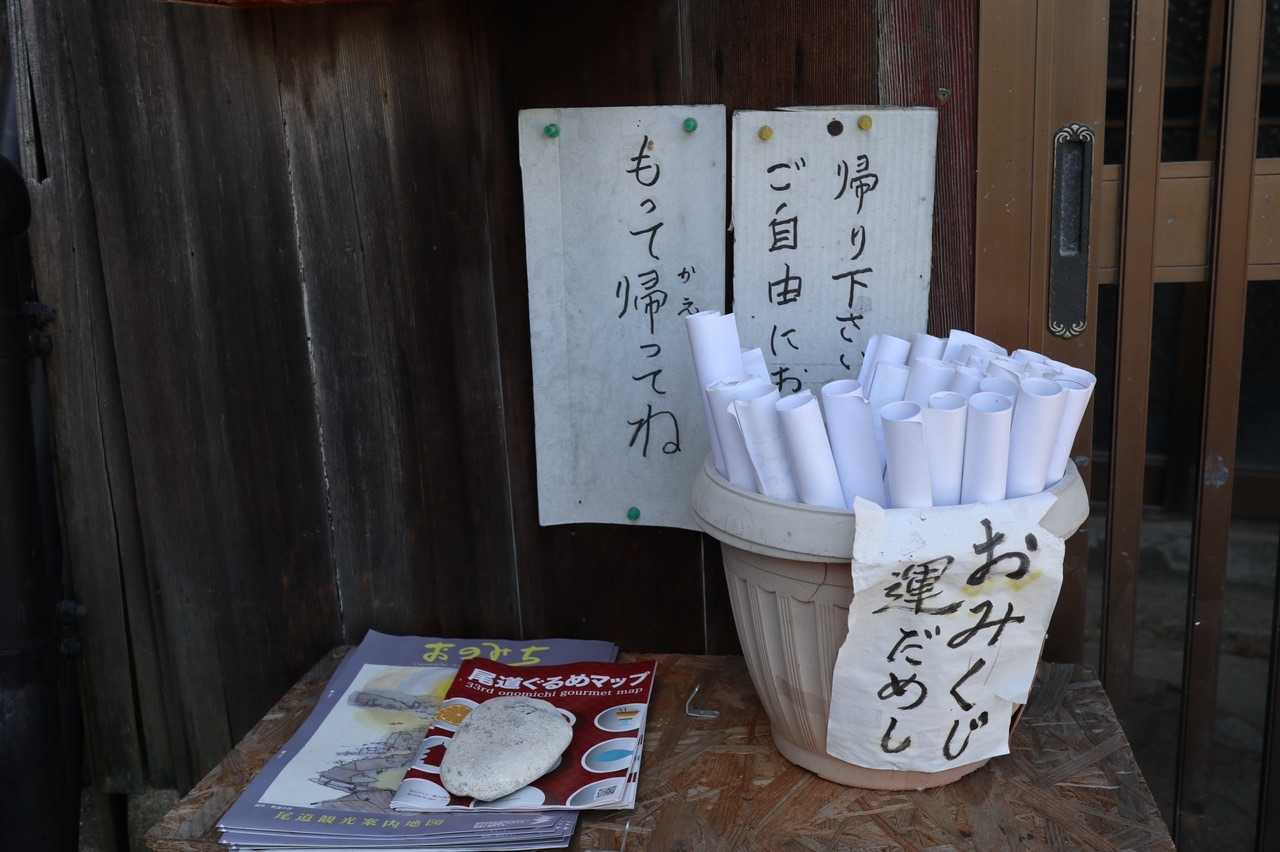 もって帰ってね
かえ
ご自由にお
帰り下さい
おみくじ
運だめし
おのみち
尾道観光案内地図
尾道ぐるめマップ
33rd onomichi gourmet map